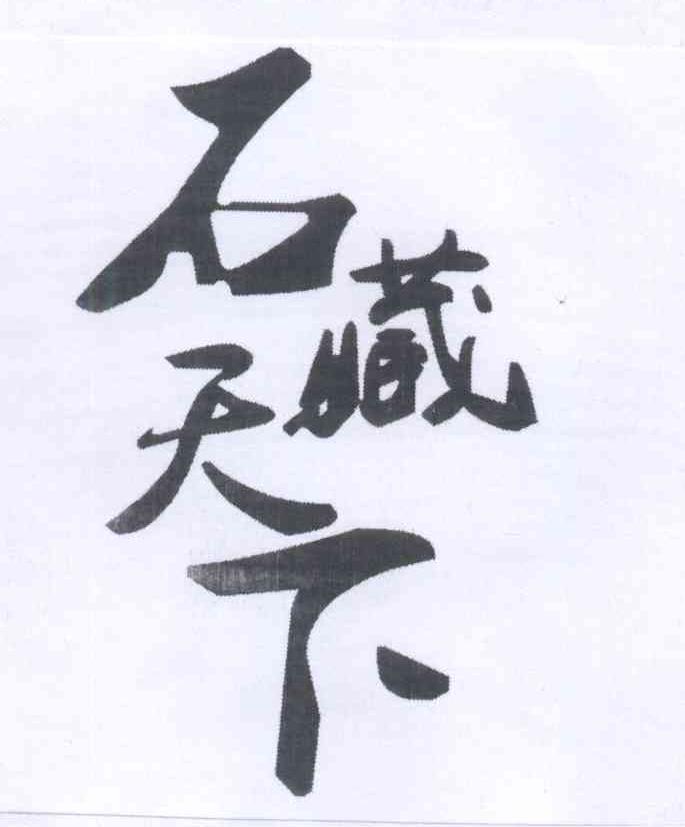 石藏天下